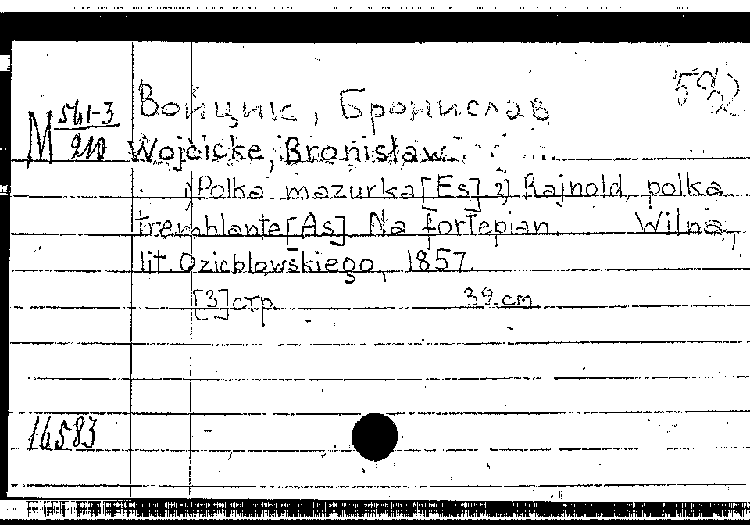 592
М 561-3
210
Войцик, Бронислав
Wojcicke, Bronisław
1) Polka mazurka [Es] 2) Rajnold, polka
tremblante [As] Na fortepian. Wilna,
lit. Ozieblowskiego, 1857.
[3] стр. 39 cm
16583